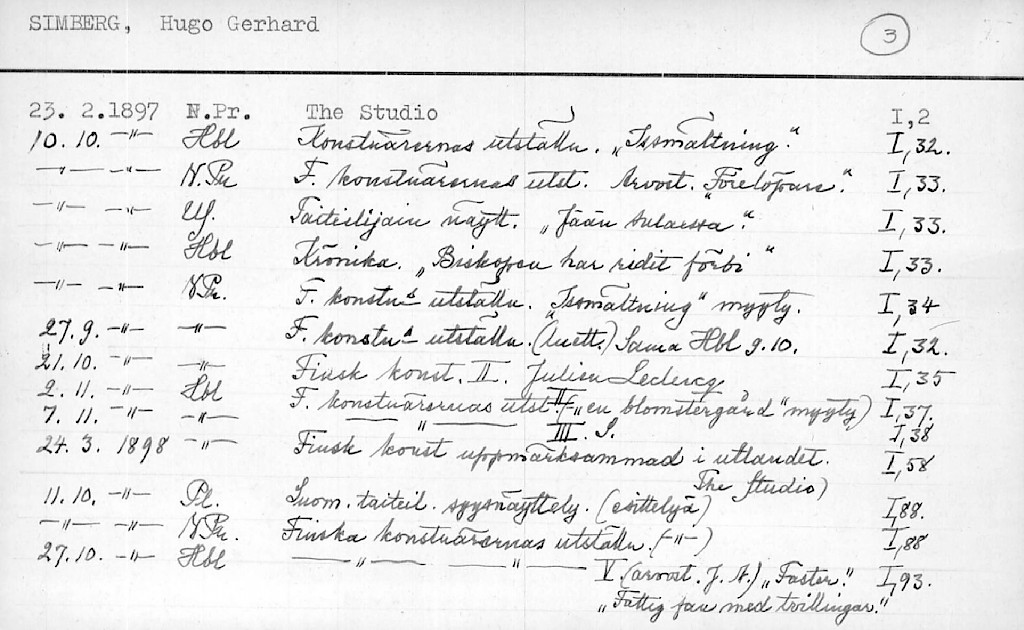 SIMBERG, Hugo Gerhard 3
23. 2.1897 N.Pr. The Studio I,2
10.10. —"— Hbl Konstnärernas utställn. „Issmältning". I,32.
—"— —"— N.Pr F. konstnärernas utst. Arvost. „Förelöpare". I,33.
—"— —"— US. Taiteilijain näytt. „Jään sulaessa". I,33.
—"— —"— Hbl Krönika. „Biskopen har ridit förbi" I,33.
—"— —"— N.Pr. F. konstn:s utställn. „Issmältning" myyty. I,34
27.9. —"— —"— F. konstn:s utställn. (luett.) Sama Hbl 9.10. I,32.
21.10. —"— —"— Finsk konst. II. Julien Leclercq I,35
2.11. —"— Hbl F. konstnärernas utst. II („en blomstergård" myyty) I,37.
7.11. —"— —"— —"— III. S. I,38
24.3. 1898 —"— Finsk konst uppmärksammad i utlandet. I,58
The Studio)
11.10. —"— Pl. Suom. taiteil. syysnäyttely. (esittelyä) I,88.
—"— —"— N.Pr. Finska konstnärernas utställn. (—"—) I,88
27.10. —"— Hbl —"— —"— V. (arvost. J. A.) „Faster". I,93.
„Fattig fan med tvillingar."